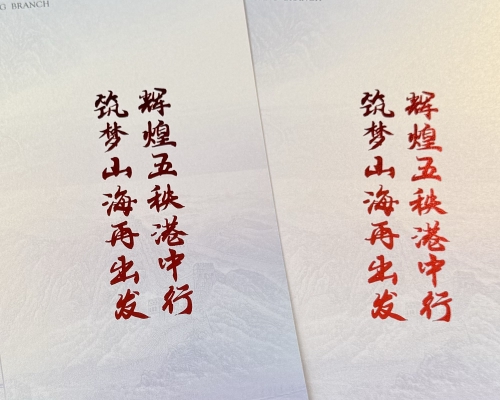 G BRANCH
辉煌五秩港中行
筑梦山海再出发
辉煌五秩港中行
筑梦山海再出发